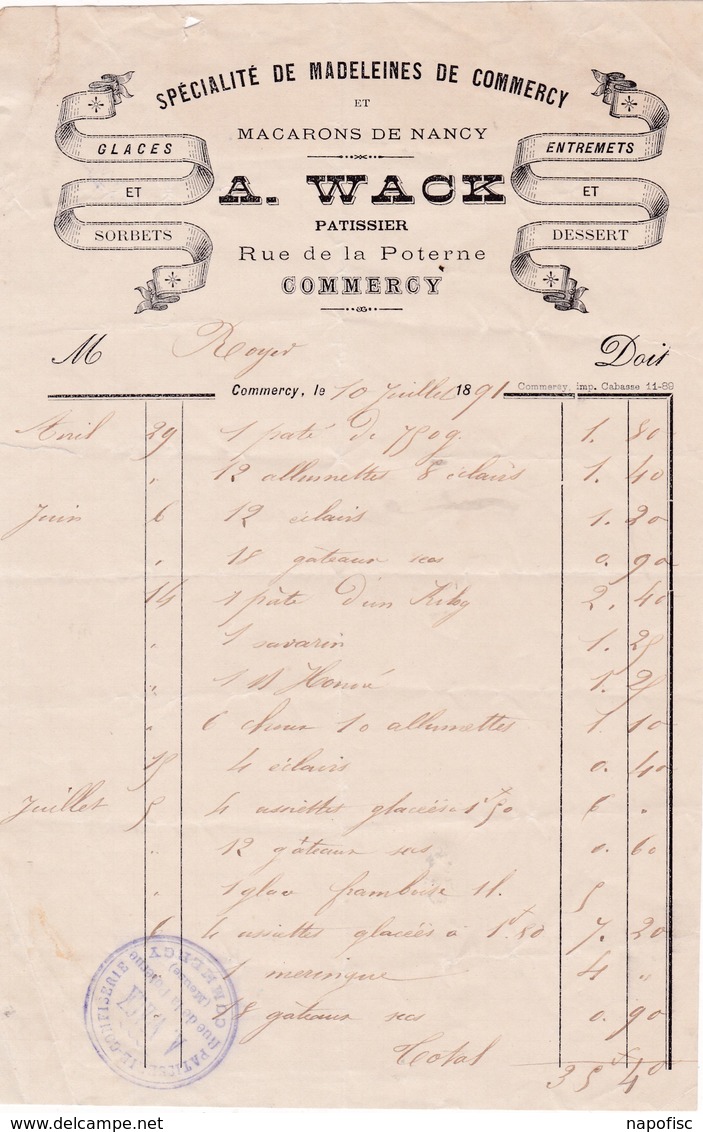 SPÉCIALITÉ DE MADELEINES DE COMMERCY
ET
MACARONS DE NANCY
GLACES
ET
SORBETS
ENTREMETS
ET
DESSERT
A. WACK
PATISSIER
Rue de la Poterne
COMMERCY
M Royer Doit
Commercy, le 10 Juillet 1891 Commercy, imp. Cabasse 11-89
Avril 29 1 pâté de 750g. 1. 80
" 12 allumettes 8 éclairs 1. 40
Juin 6 12 éclairs 1. 20
" 18 gâteaux secs 0. 90
14 1 pâté d'un Kilog 2. 40
" 1 savarin 1. 25
" 1 St Honoré 1. 25
" 6 choux 10 allumettes 1. 10
15 4 éclairs 0. 40
Juillet 5 4 assiettes glacées 1f50 6 "
" 12 gâteaux secs 0. 60
" 1 glace framboise 1l. 5
6 4 assiettes glacées à 1f.80 7. 20
" 1 meringue 4 "
18 gâteaux secs 0. 90
Total 35f 40
CONFISERIE
Rue de la Poterne
(Meuse)
COMMERCY
napofisc www.delcampe.net